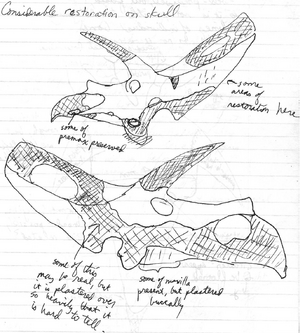 Considerable restoration on skull
some
areas of
restoration here
some of
premax preserved
some of this
may be real, but
it is plastered over
so heavily that it
is hard to tell.
some of maxilla
present, but plastered
buccally